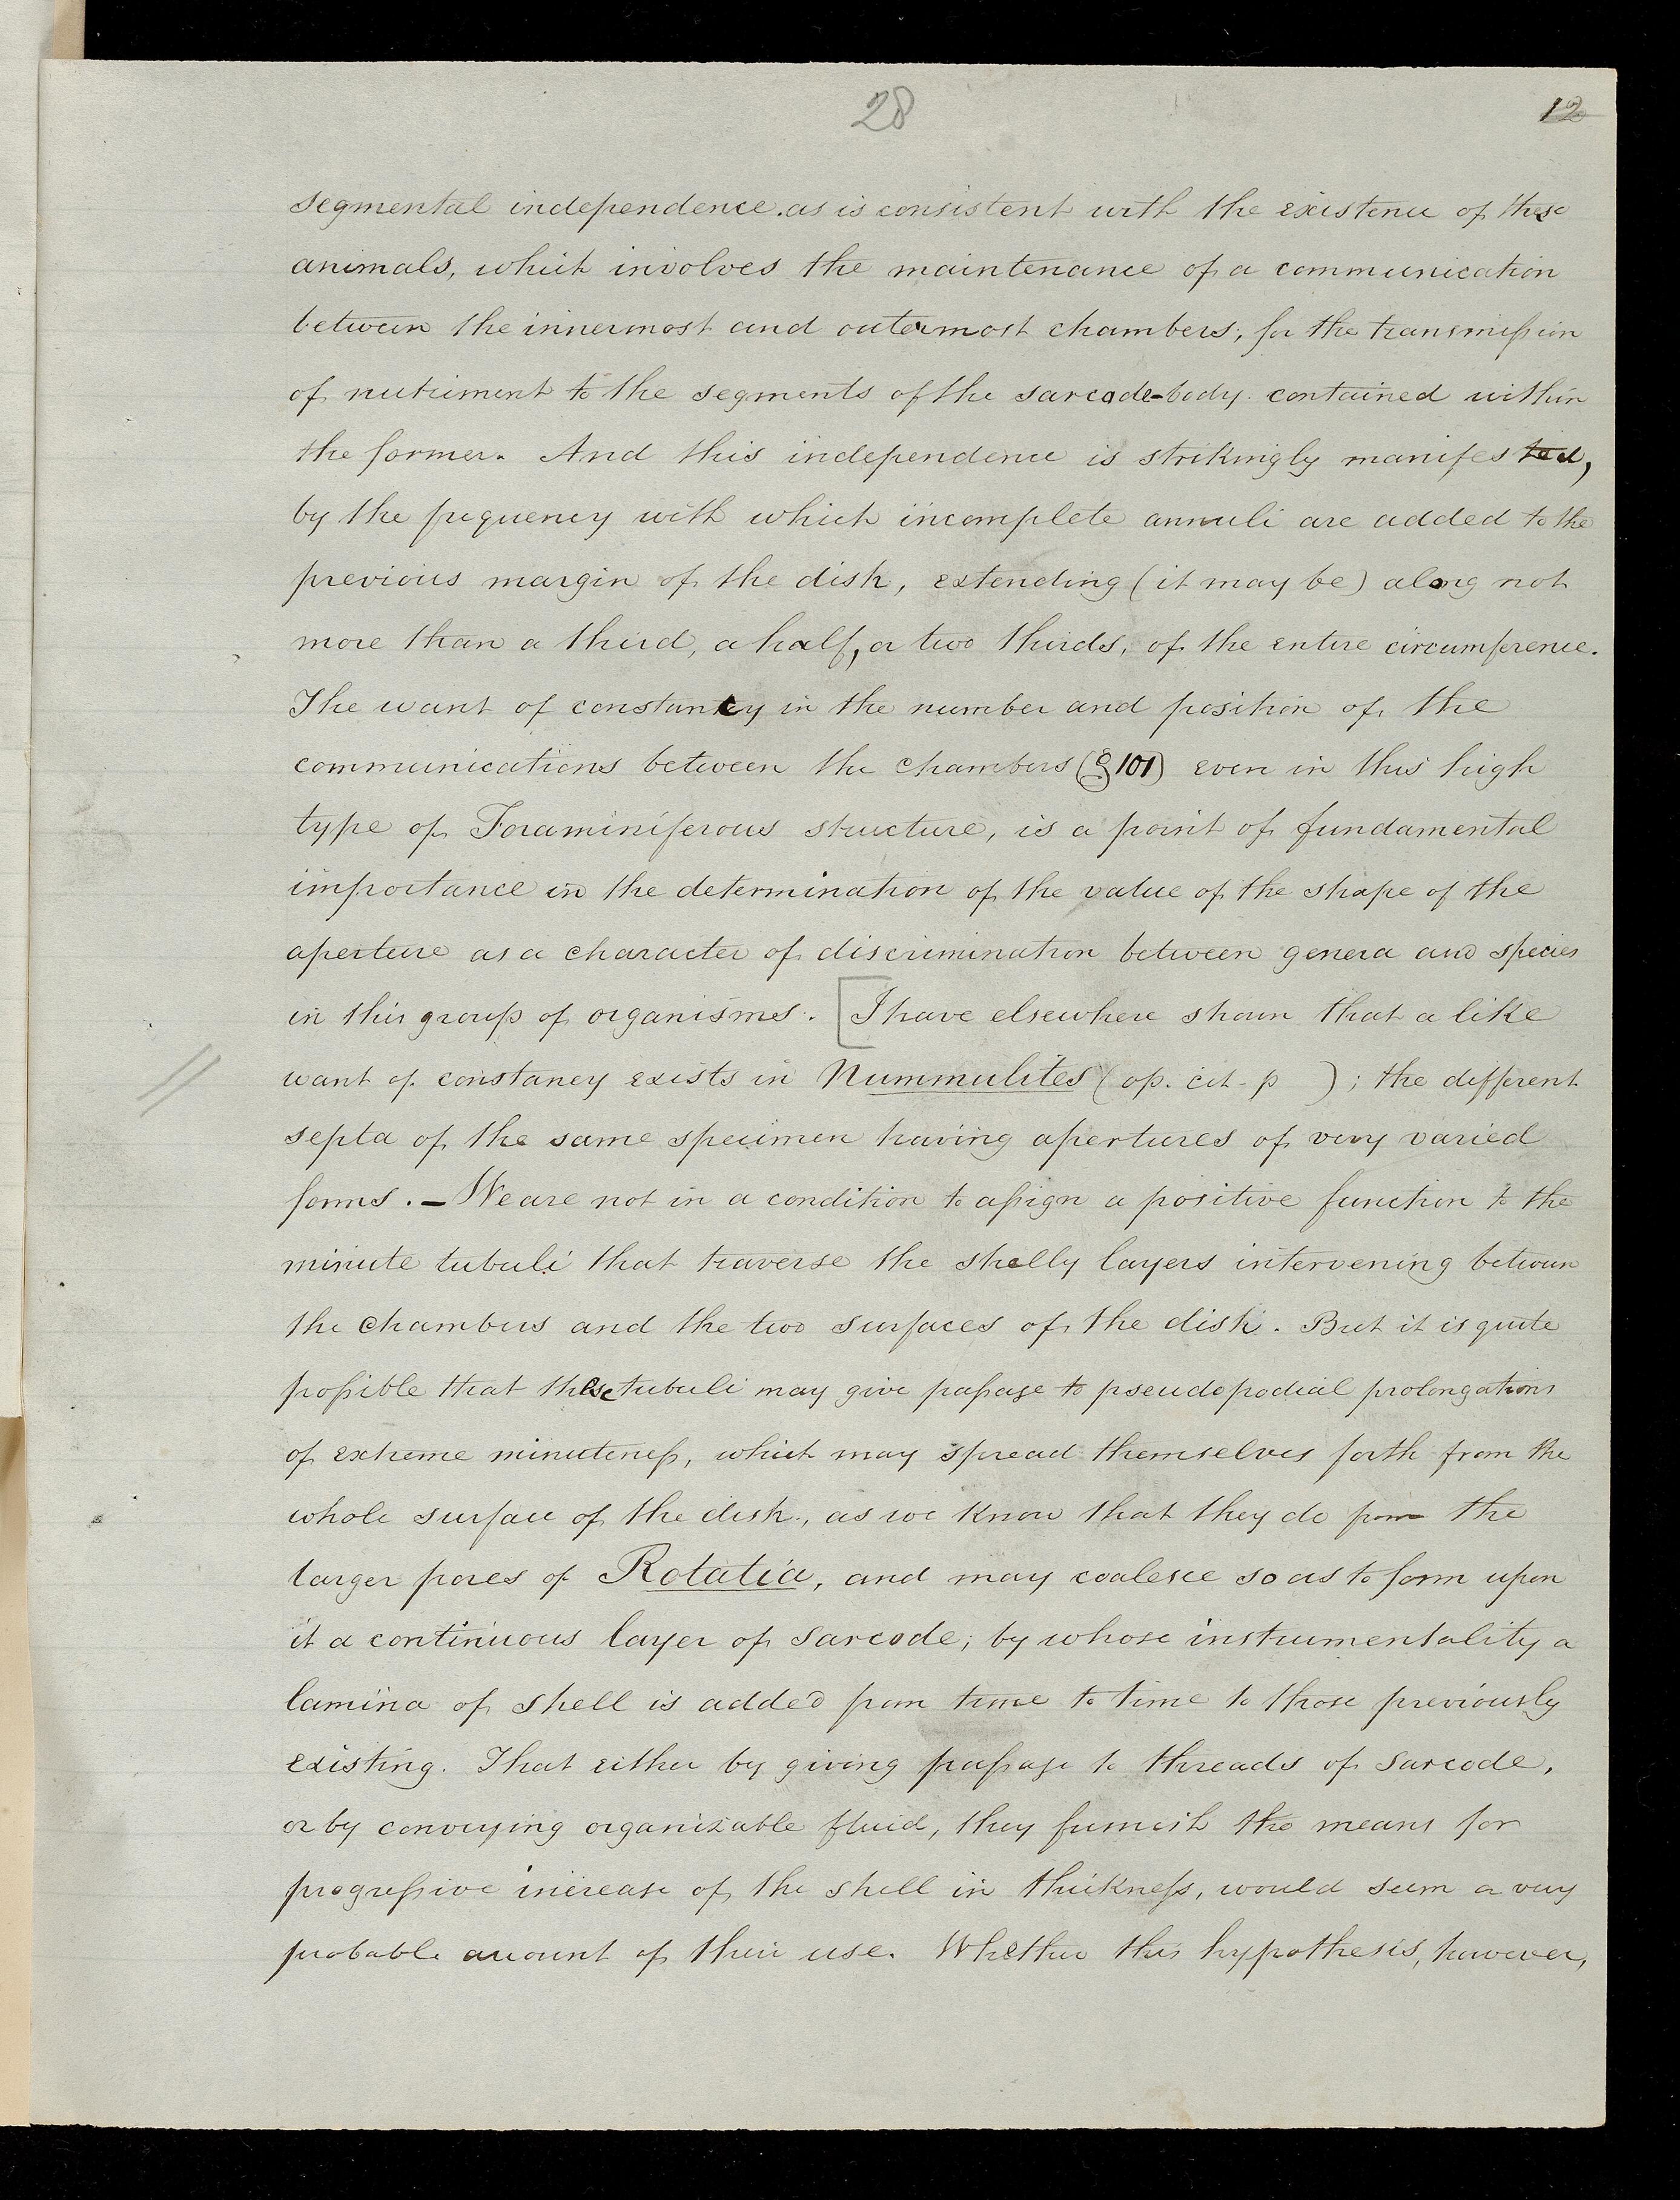 28
12
segmental independence as is consistent with the existence of these
animals, which involves the maintenance of a communication
between the innermost and outermost chambers, for the transmission
of nutriment to the segments of the sarcode-body contained within
the former. And this independence is strikingly manifested,
by the frequency with which incomplete annuli are added to the
previous margin of the disk, extending (it may be) along not
more than a third, a half, or two thirds, of the entire circumference.
The want of constancy in the number and position of the
communications between the chambers (§101) even in this high
type of Foraminiferous structure, is a point of fundamental
importance in the determination of the value of the shape of the
aperture as a character of discrimination between genera and species
in this group of organisms. [I have elsewhere shown that a like
want of constancy exists in Nummulites (op. cit. p ); the different
septa of the same specimen having apertures of very varied
forms. – We are not in a condition to assign a positive function to the
minute tubuli that traverse the shelly layers intervening between
the chambers and the two surfaces of the disk. But it is quite
possible that these tubuli may give passage to pseudopodial prolongations
of extreme minuteness, which may spread themselves forth from the
whole surface of the disk, as we know that they do from the
larger pores of Rotalia, and may coalesce so as to form upon
it a continuous layer of sarcode; by whose instrumentality a
lamina of shell is added from time to time to those previously
existing. That either by giving passage to threads of sarcode,
or by conveying organizable fluid, they furnish the means for
progressive increase of the shell in thickness, would seem a very
probable account of their use. Whether this hypothesis, however,